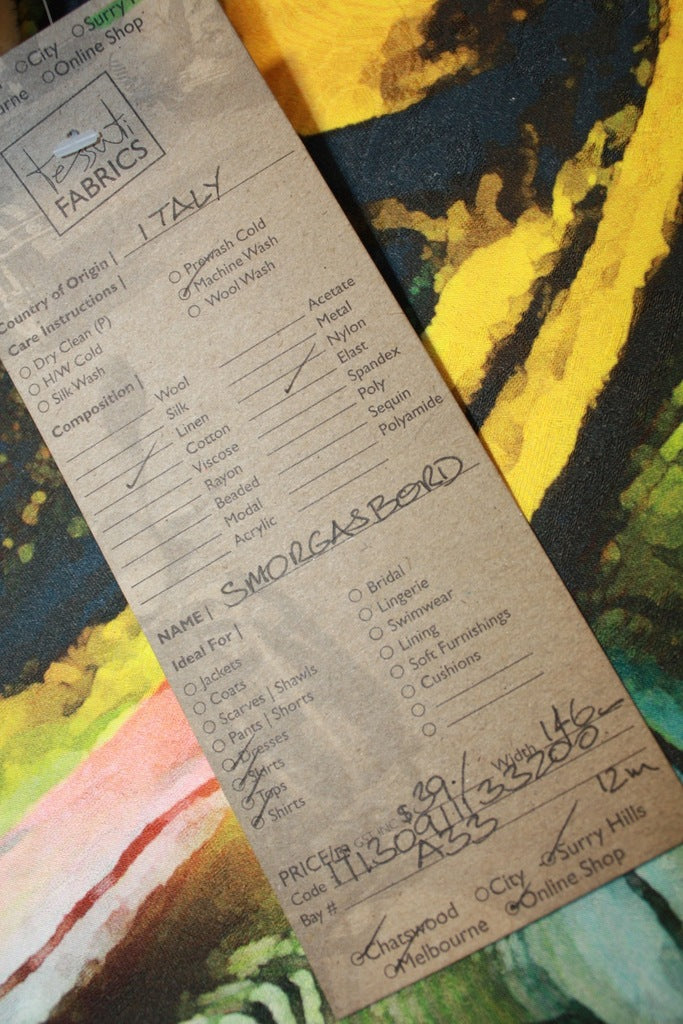 City Surry
Online Shop
Tessuti
FABRICS
Country of Origin | ITALY
Care Instructions |
Dry Clean (P)
H/W Cold
Silk Wash
Prewash Cold
Machine Wash
Wool Wash
Composition |
Wool
Silk
Linen
Cotton
Viscose
Rayon
Beaded
Modal
Acrylic
Acetate
Metal
Nylon
Elast
Spandex
Poly
Sequin
Polyamide
NAME | SMORGASBORD
Ideal For |
Jackets
Coats
Scarves | Shawls
Pants | Shorts
Dresses
Skirts
Tops
Shirts
Bridal
Lingerie
Swimwear
Lining
Soft Furnishings
Cushions
PRICE/m GST INC $39./ Width 146
Code
Bay # A33 12m
Chatswood City Surry Hills
Melbourne Online Shop